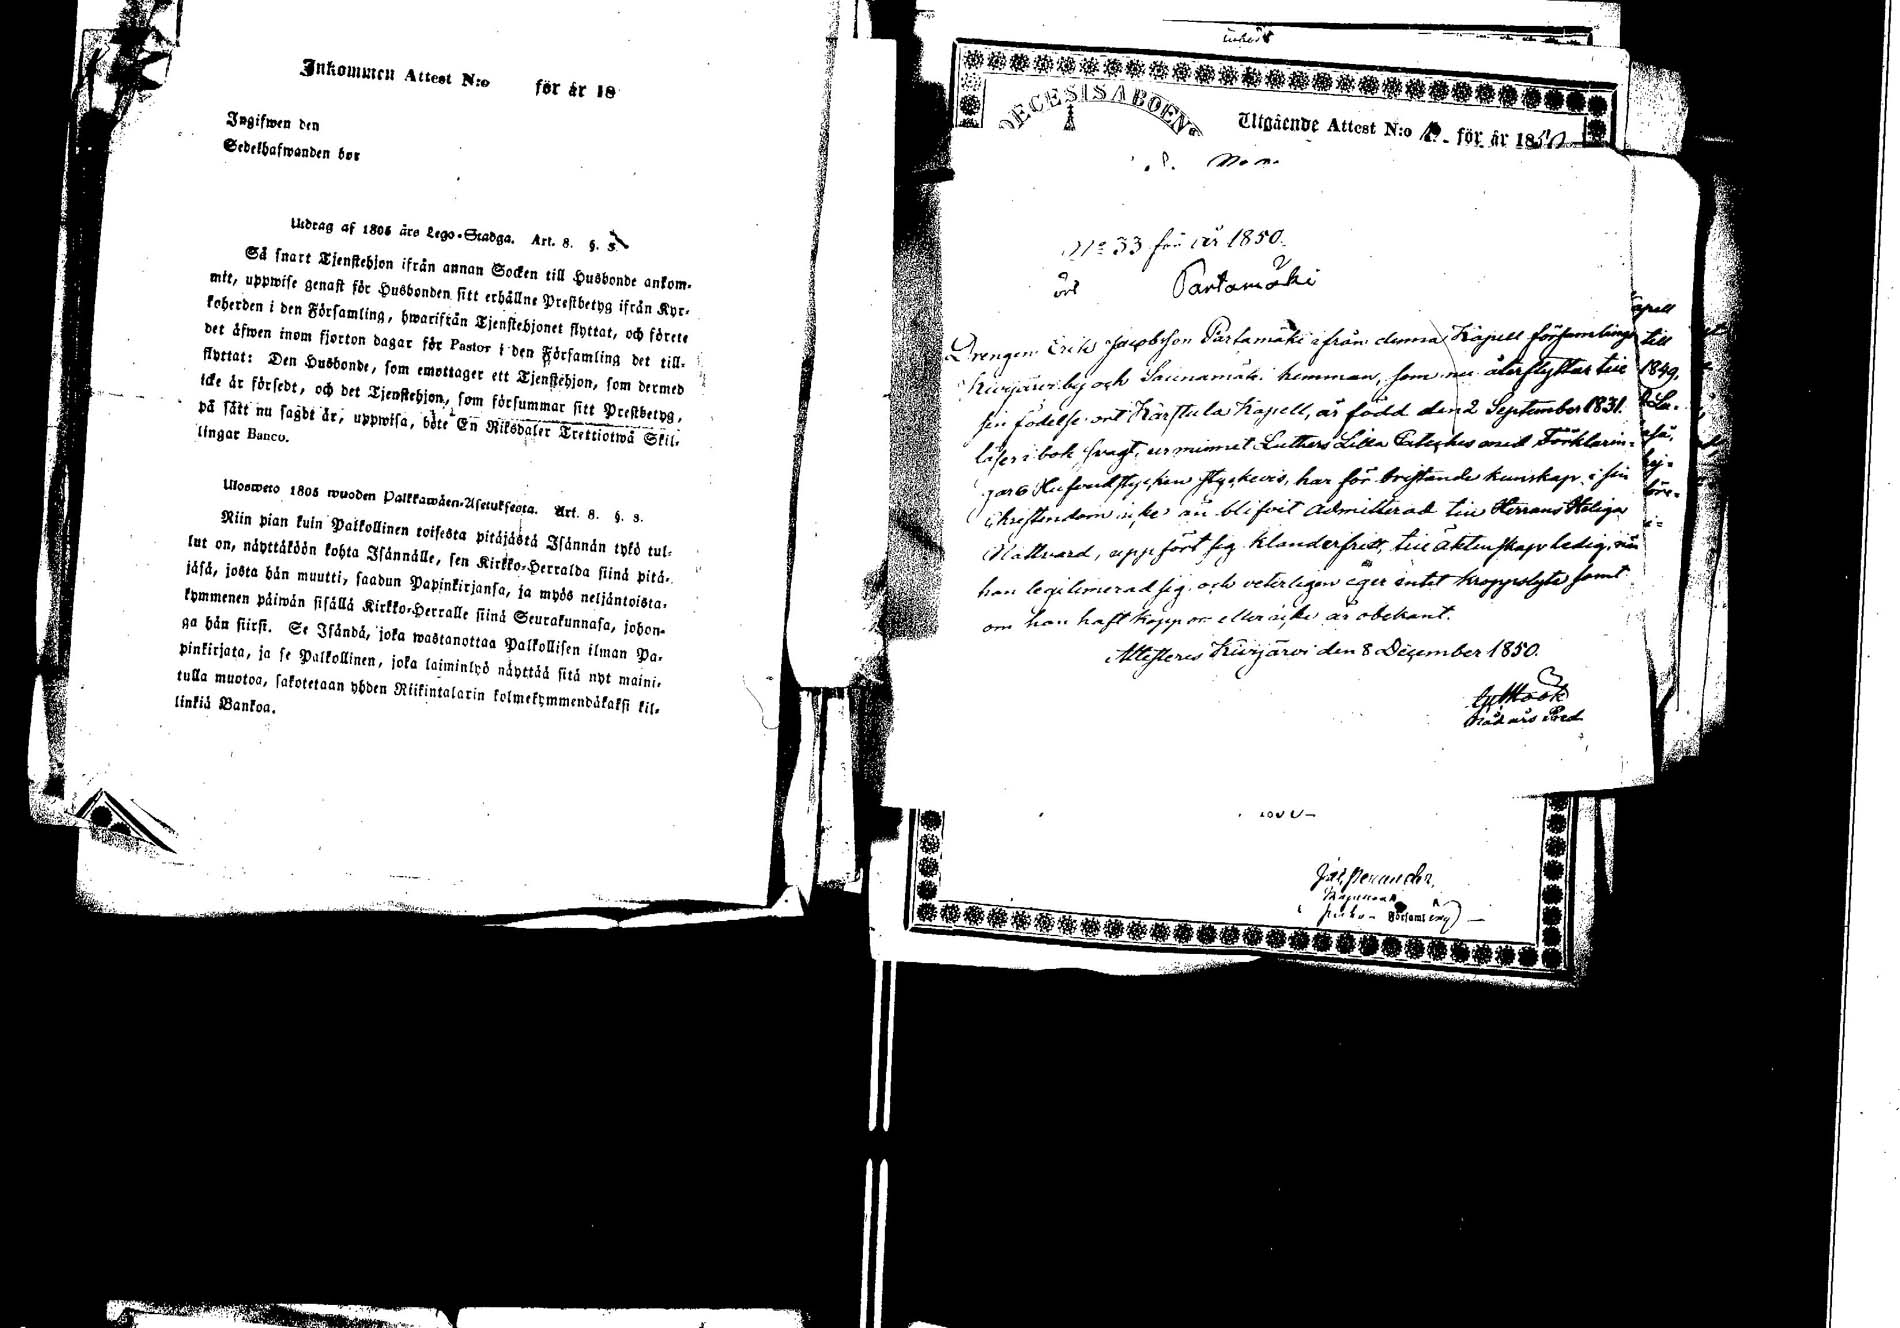 Inkommen Attest N:o för år 18
Ingifwen den
Sedelhafwanden bor
Utdrag af 1805 års Lego-Stadga. Art. 8. §. 3.
Så snart Tjenstehjon ifrån annan Socken till Husbonde ankom-
mit, uppwise genast för Husbonden sitt erhållne Prestbetyg ifrån Kyr-
koherden i den Församling, hwarifrån Tjenstehjonet flyttat, och förete
det äfwen inom fjorton dagar för Pastor i den Församling det till-
flyttat: Den Husbonde, som emottager ett Tjenstehjon, som dermed
icke är försedt, och det Tjenstehjon, som försummar sitt Prestbetyg,
på sätt nu sagdt är, uppwisa, böte En Riksdaler Trettiotwå Skil-
lingar Banco.
Ulosweto 1805 wuoden Palkkawäen-Asetuksesta. Art. 8. §. 3.
Niin pian kuin Palkollinen toisesta pitäjästä Isännän tykö tul-
lut on, näyttäköön kohta Isännälle, sen Kirkko-Herralda siinä pitä-
jäsä, josta hän muutti, saadun Papinkirjansa, ja myös neljäntoista-
kymmenen päiwän sisällä Kirkko-Herralle siinä Seurakunnasa, johon-
ga hän siirsi. Se Isändä, joka wastanottaa Palkollisen ilman Pa-
pinkirjata, ja se Palkollinen, joka laiminlyö näyttää sitä nyt maini-
tulla muotoa, sakotetaan yhden Riikintalarin kolmekymmendäkaksi kil-
linkiä Bankoa.
DECESIS ABOENS
Utgående Attest N:o för år 1850
No 33 för år 1850.
Partamäki
Drengen Eriks Jacobsson Partamäki ifrån denna Kapell församlings
Kivijärvi by och Saunamäki hemman, som nu återflyttar till
sin födelse ort Karstula Kapell, är född den 2 September 1831.
läser i bok svagt, ur minnet Luthers Lilla Cateches med Förklarin-
gar Hufvudstycken styckevis, har för bristande kunskap i sin
christendom icke än blifvit admitterad till Herrans Heliga
Nattvard, uppfört sig klanderfritt, till äktenskap ledig, när
han legitimerad sig och veterligen äger intet kroppslyte samt
om han haft koppor eller icke är obekant.
Attesteras Kivijärvi den 8 December 1850.
apell
till
1849,
Församling